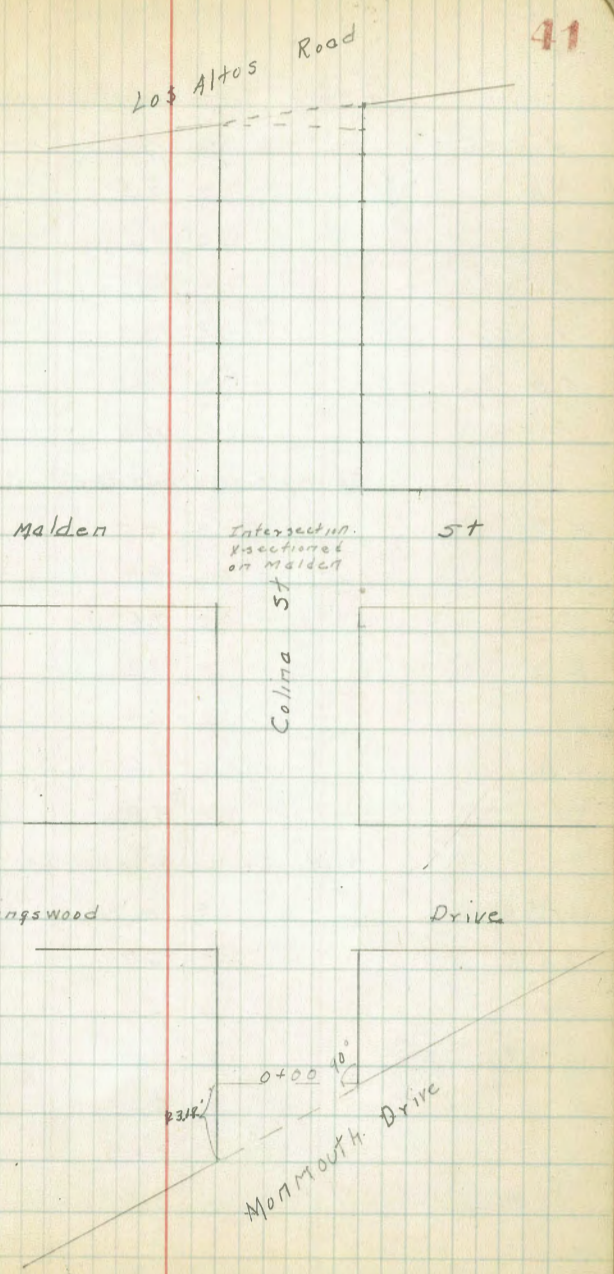 41
Los Altos Road
Malden
St
Intersection.
X-sectioned
on Malden
Colina St
ngswood
Drive
0+00
90°
Monmouth Drive